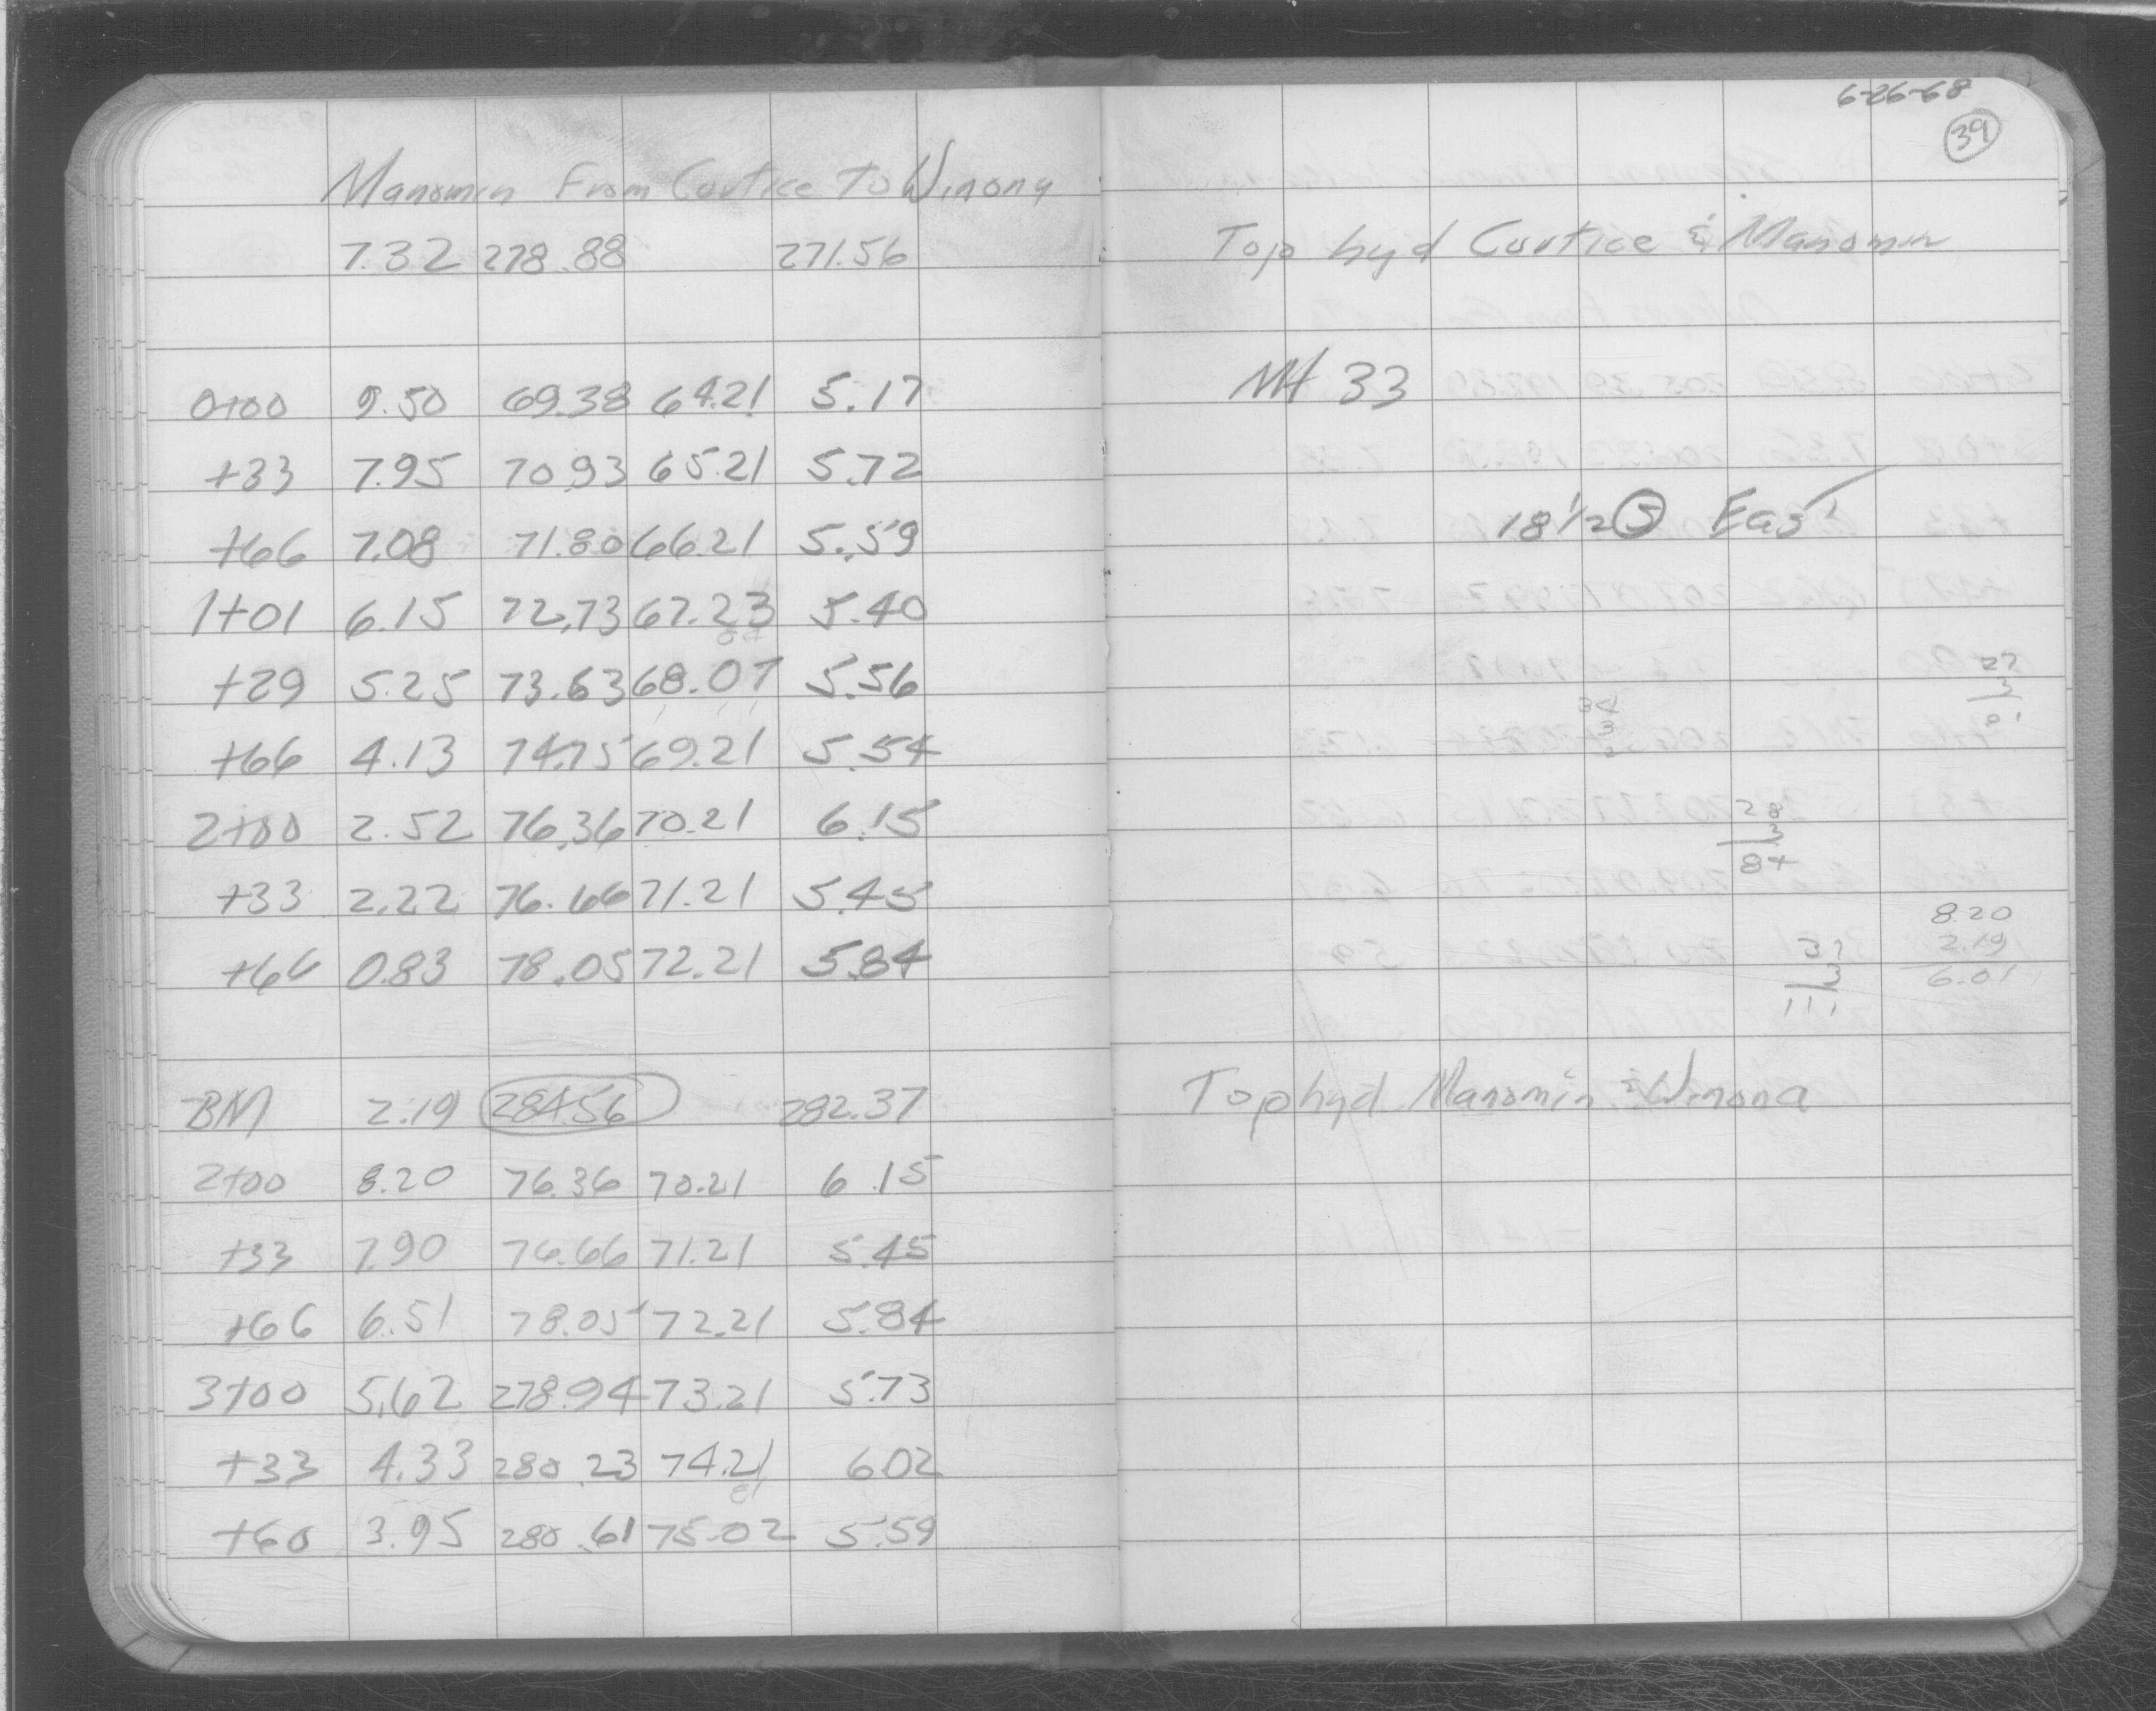 Manomin From Curtice To Winona
7.32 278.88 271.56
0+00 9.50 69.38 64.21 5.17
+33 7.95 70.93 65.21 5.72
+66 7.08 71.80 66.21 5.59
1+01 6.15 72.73 67.23 5.40
+29 5.25 73.63 68.07 5.56
+66 4.13 74.75 69.21 5.54
2+00 2.52 76.36 70.21 6.15
+33 2.22 76.66 71.21 5.45
+66 0.83 78.05 72.21 5.84
BM 2.19 284.56 282.37
2+00 8.20 76.36 70.21 6.15
+33 7.90 76.66 71.21 5.45
+66 6.51 78.05 72.21 5.84
3+00 5.62 278.94 73.21 5.73
+33 4.33 280.23 74.21 6.02
+60 3.95 280.61 75.02 5.59
6-26-68
39
Top hyd Curtice & Manomin
MH 33
18 1/2 S East
34
3
28
3
84
8.20
2.19
6.01
Top hyd Manomin & Winona